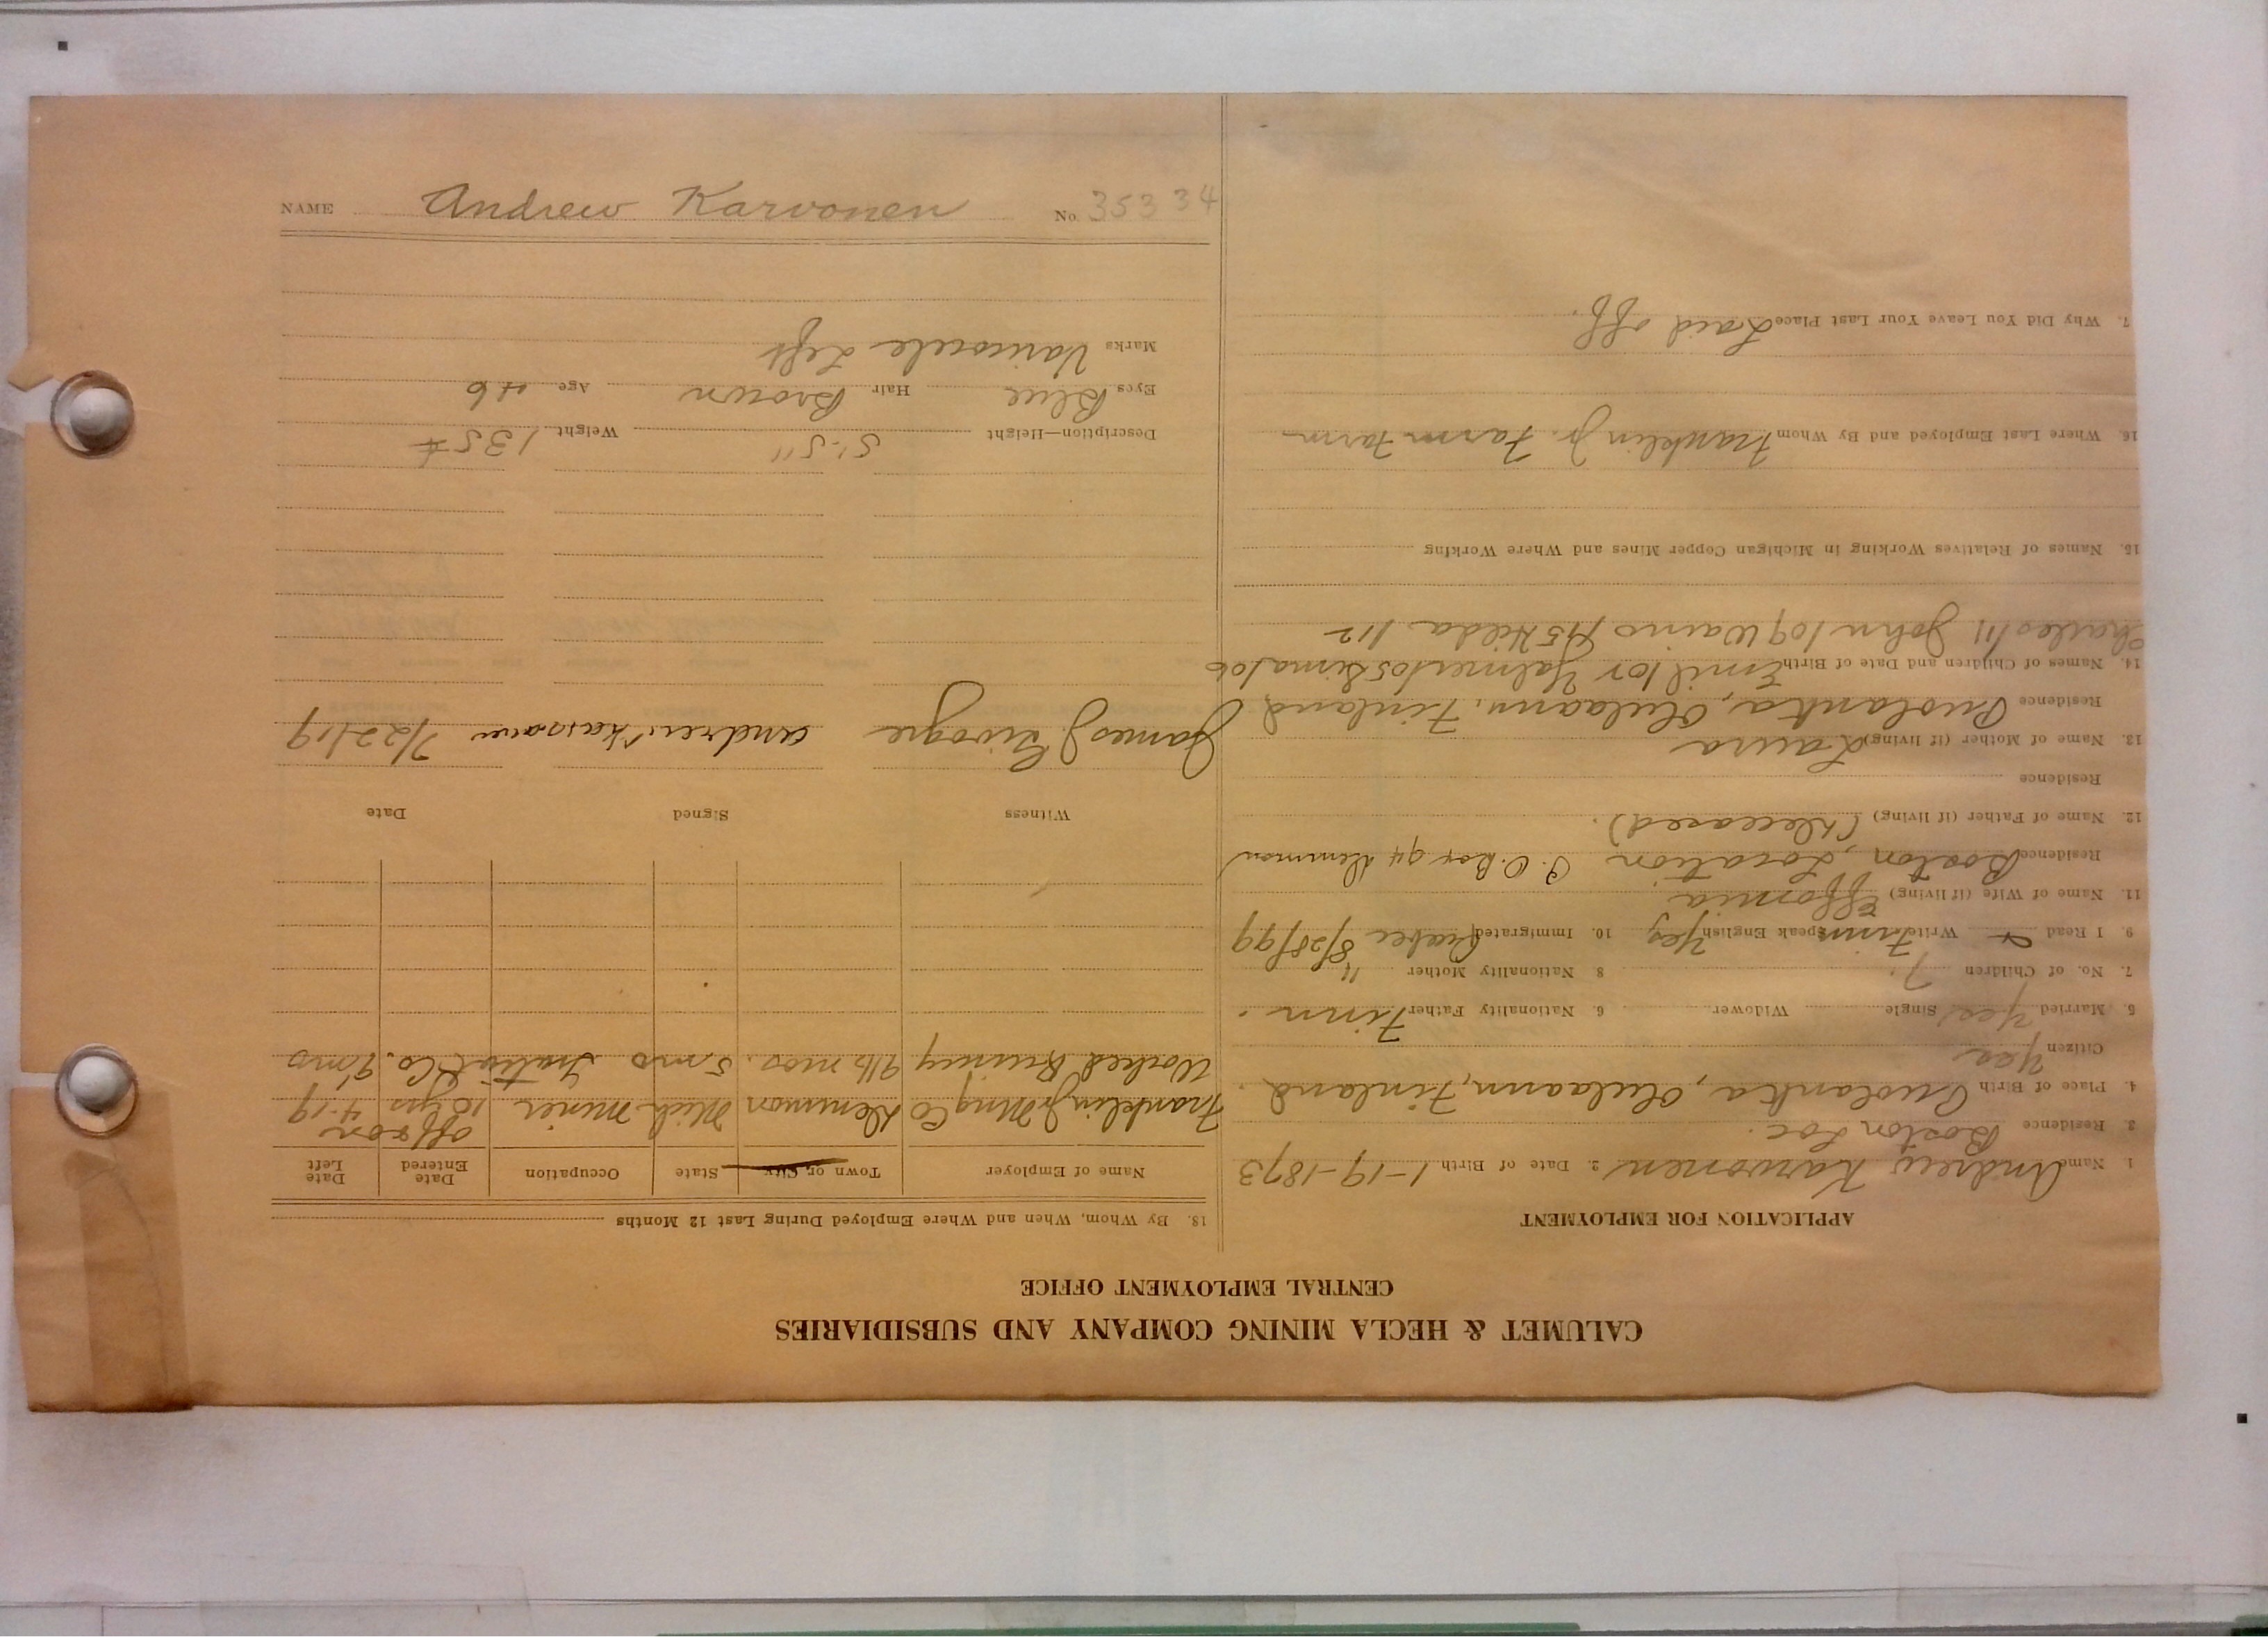 CALUMET & HECLA MINING COMPANY AND SUBSIDIARIES
CENTRAL EMPLOYMENT OFFICE
APPLICATION FOR EMPLOYMENT
1 Name Andrew Karvonen 2. Date of Birth 1-19-1873
3 Residence Boston Loc.
4. Place of Birth Puolanka, Oulaann, Finland.
Citizen Yes
5. Married Yes Single Widower 6. Nationality Father Finn.
7. No. of Children 7. 8 Nationality Mother "
9 I Read & Write Finn Speak English Yes 10. Immigrated Quebec 8/28/99
11. Name of Wife (if living) Effomia
Residence Boston, Location P.O. Box 94 Demmon
12. Name of Father (if living) (Deceased).
Residence
13. Name of Mother (if living) Laura
Residence Puolanka, Oulaann, Finland
14. Names of Children and Date of Birth Emil 10r Yalmer 105 Sima 106
Charles 111 John 109 Waino 115 Hilda 112
15. Names of Relatives Working in Michigan Copper Mines and Where Working
16. Where Last Employed and By Whom Franklin Jr. Farm Farm
7. Why Did You Leave Your Last Place Laid off.
18. By Whom, When and Where Employed During Last 12 Months
Name of Employer Town or City State Occupation Date Entered Date Left
Franklin Jr Mng Co Demmon Mich Miner 18 yrs off & on 4-19
Worked Quincy 9½ mos. 5 mo Co. 9 mo
Witness Signed Date
James J. Andrew Karvonen 7/22/19
Description—Height 5'-5" Weight 135#
Eyes Blue Hair Brown Age 46
Marks Varicocele Left
NAME Andrew Karvonen No. 35334